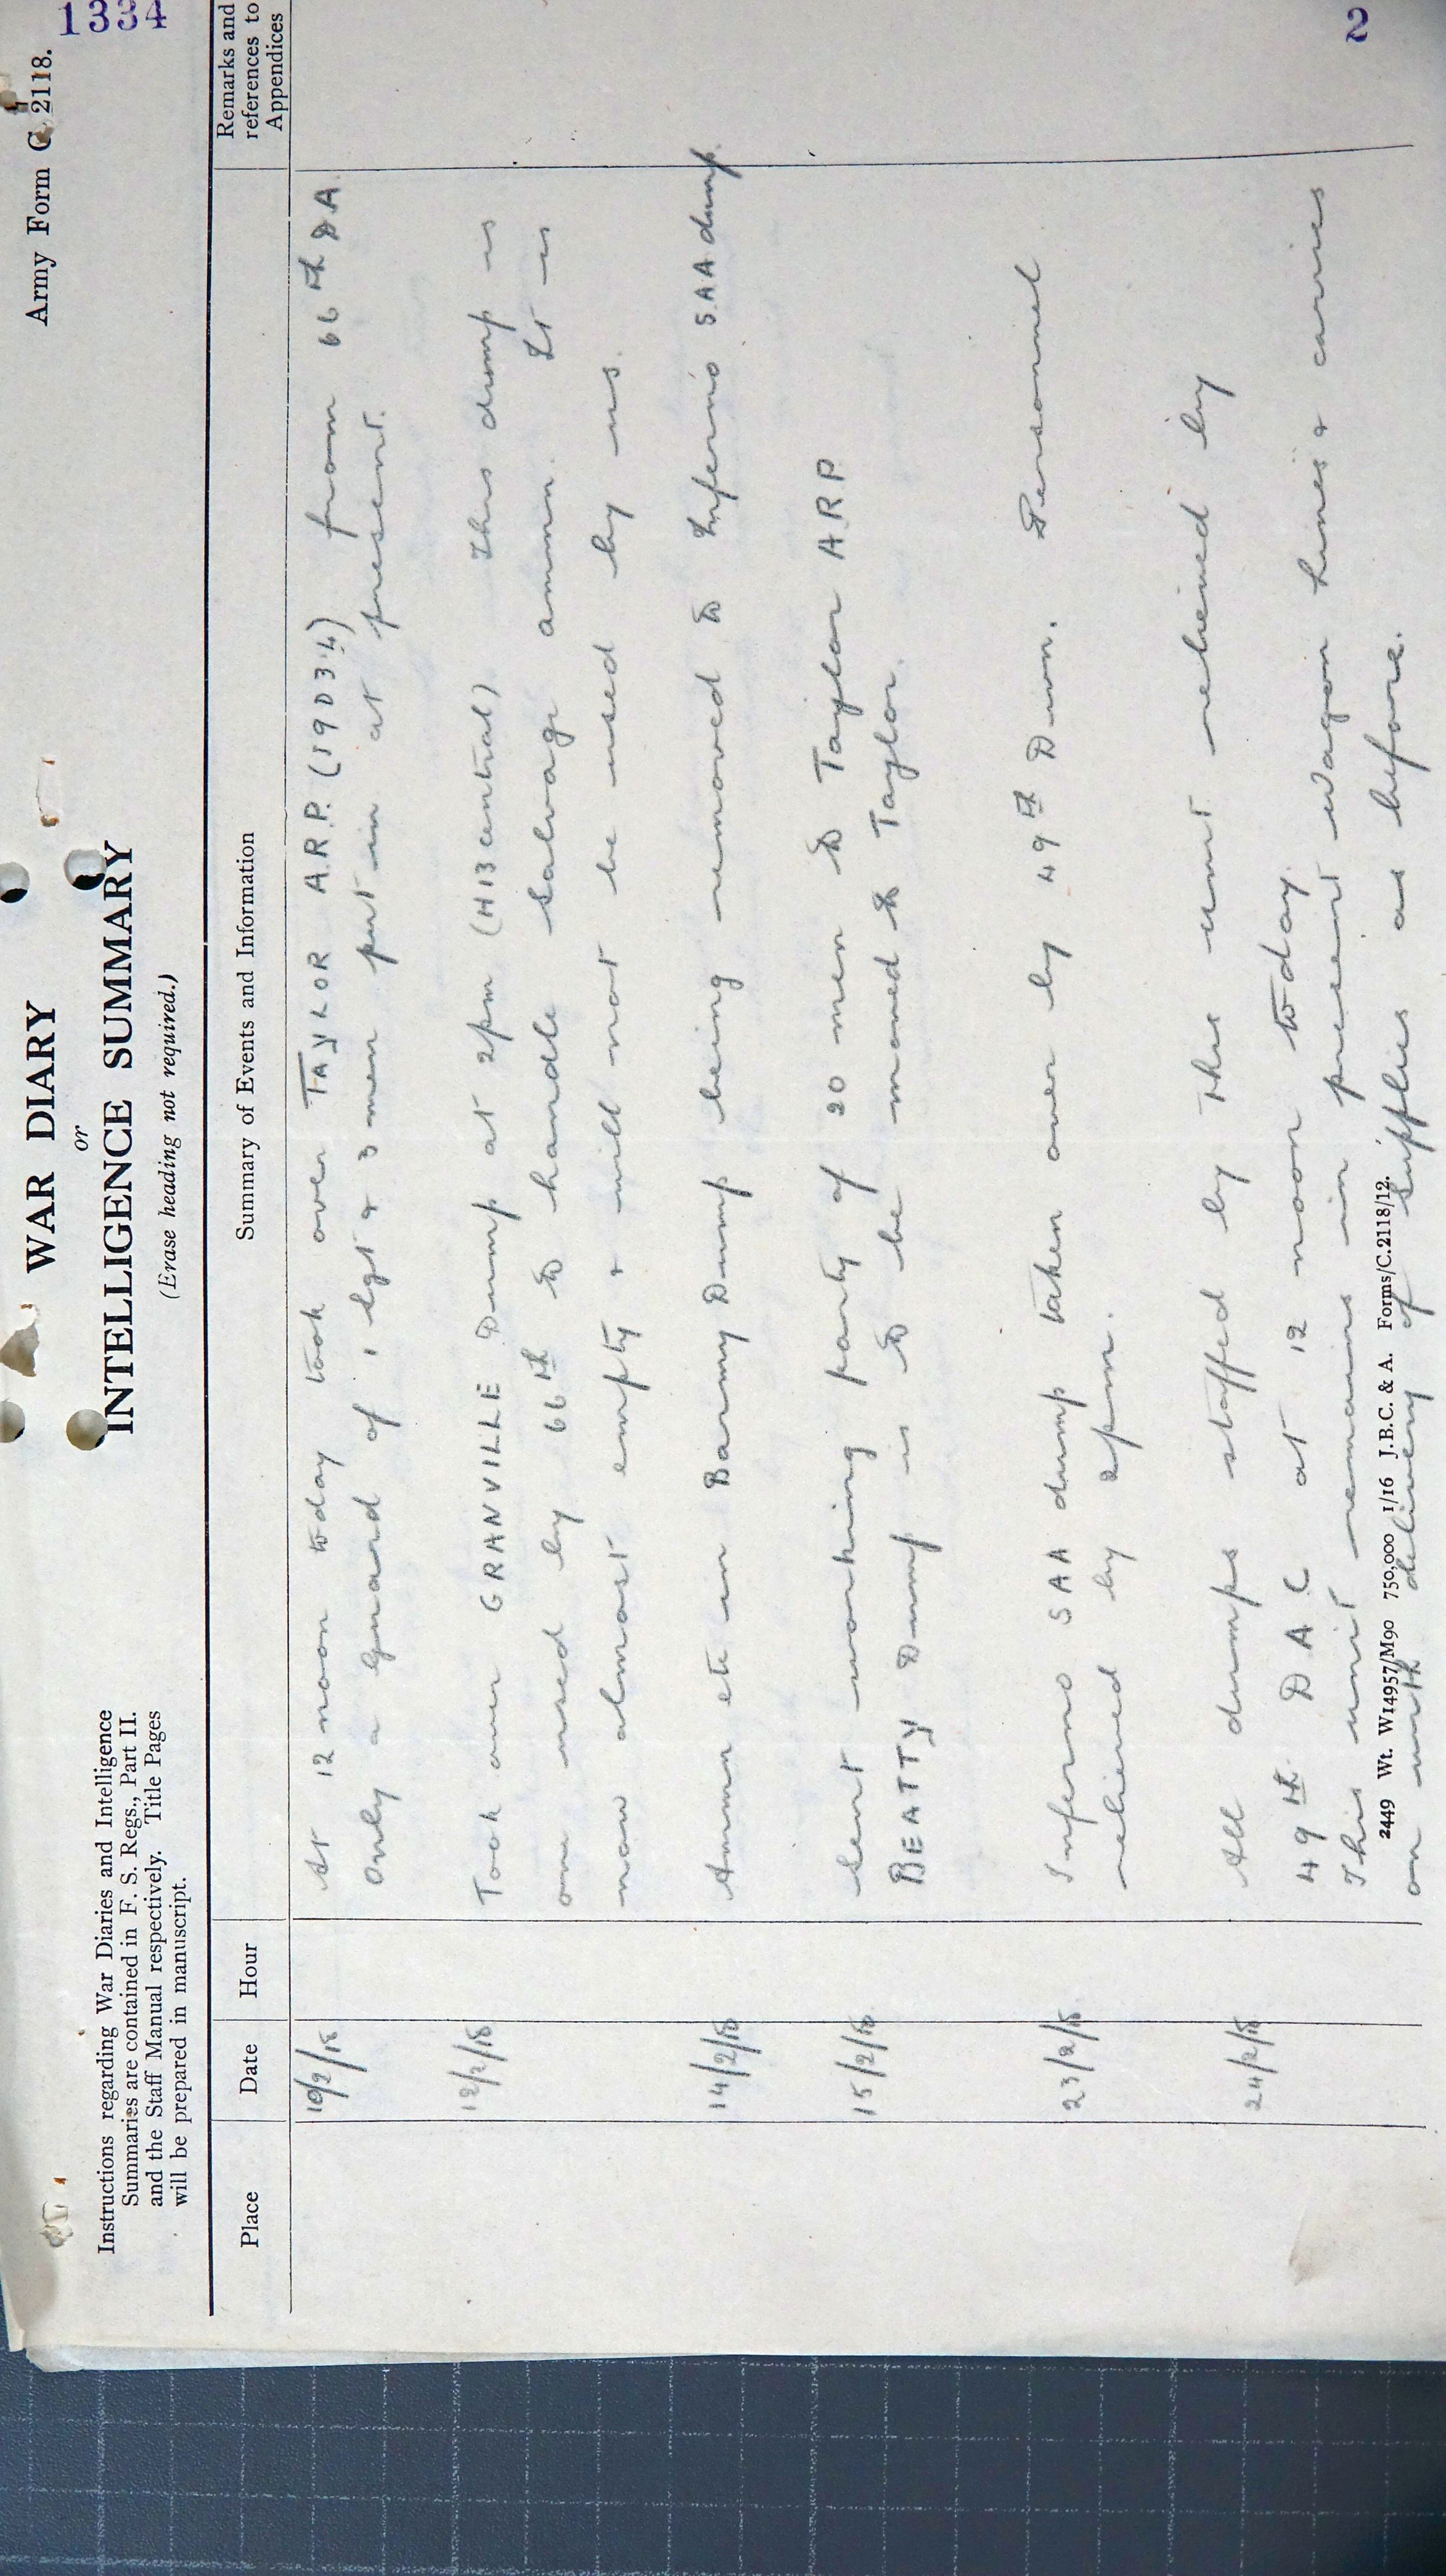 Army Form C. 2118.
1334
WAR DIARY
or
INTELLIGENCE SUMMARY
(Erase heading not required.)
Instructions regarding War Diaries and Intelligence
Summaries are contained in F. S. Regs., Part II.
and the Staff Manual respectively. Title Pages
will be prepared in manuscript.
Place Date Hour Summary of Events and Information Remarks and references to Appendices
10/2/18 At 12 noon today took over TAYLOR A.R.P. (19D3.4) from 66th DA.
Only a guard of 1 Sgt & 3 men put in at present.
12/2/18 Took over GRANVILLE Dump at 2pm (H13central) This dump is
one used by 66th to handle salvage ammn. It is
now almost empty & will not be used by us.
14/2/18 Ammn etc in Barmy Dump being removed to Inferno S.A.A dump.
15/2/18 Sent working party of 20 men to Taylor A.R.P
BEATTY Dump is to be moved to Taylor.
23/2/18 Inferno SAA dump taken over by 49th Divn. Personnel
relieved by 2pm.
24/2/18 All dumps staffed by this unit relieved by
49th D A C at 12 noon today.
This unit remains in present wagon lines & carries
on with delivery of supplies as before.
2449 Wt. W14957/M90 750,000 1/16 J.B.C. & A. Forms/C.2118/12.
2